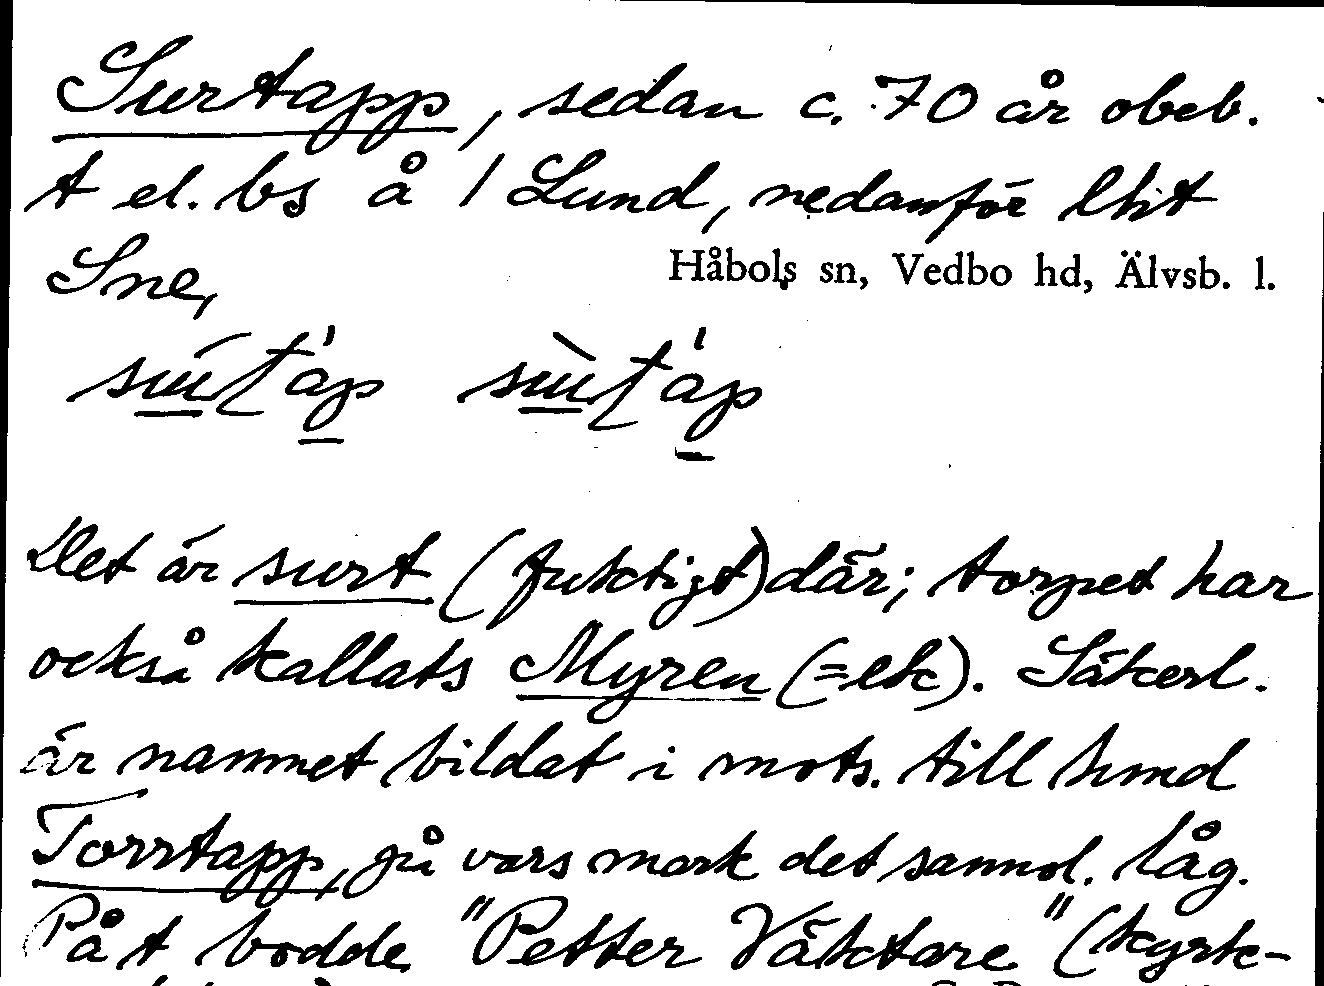 Surtapp, sedan c. 70 år obeb.
t el. bs å 1 Lund, nedanför ltit
Sne,
Håbols sn, Vedbo hd, Älvsb. l.
Det är surt (fuktigt) där; torpet har
också kallats Myren (=ek). Säkerl.
är namnet bildat i mots. till hmd
Torrtapp, på vars mark det sannol. låg.
På t. bodde "Petter Väktare" (kyrk-